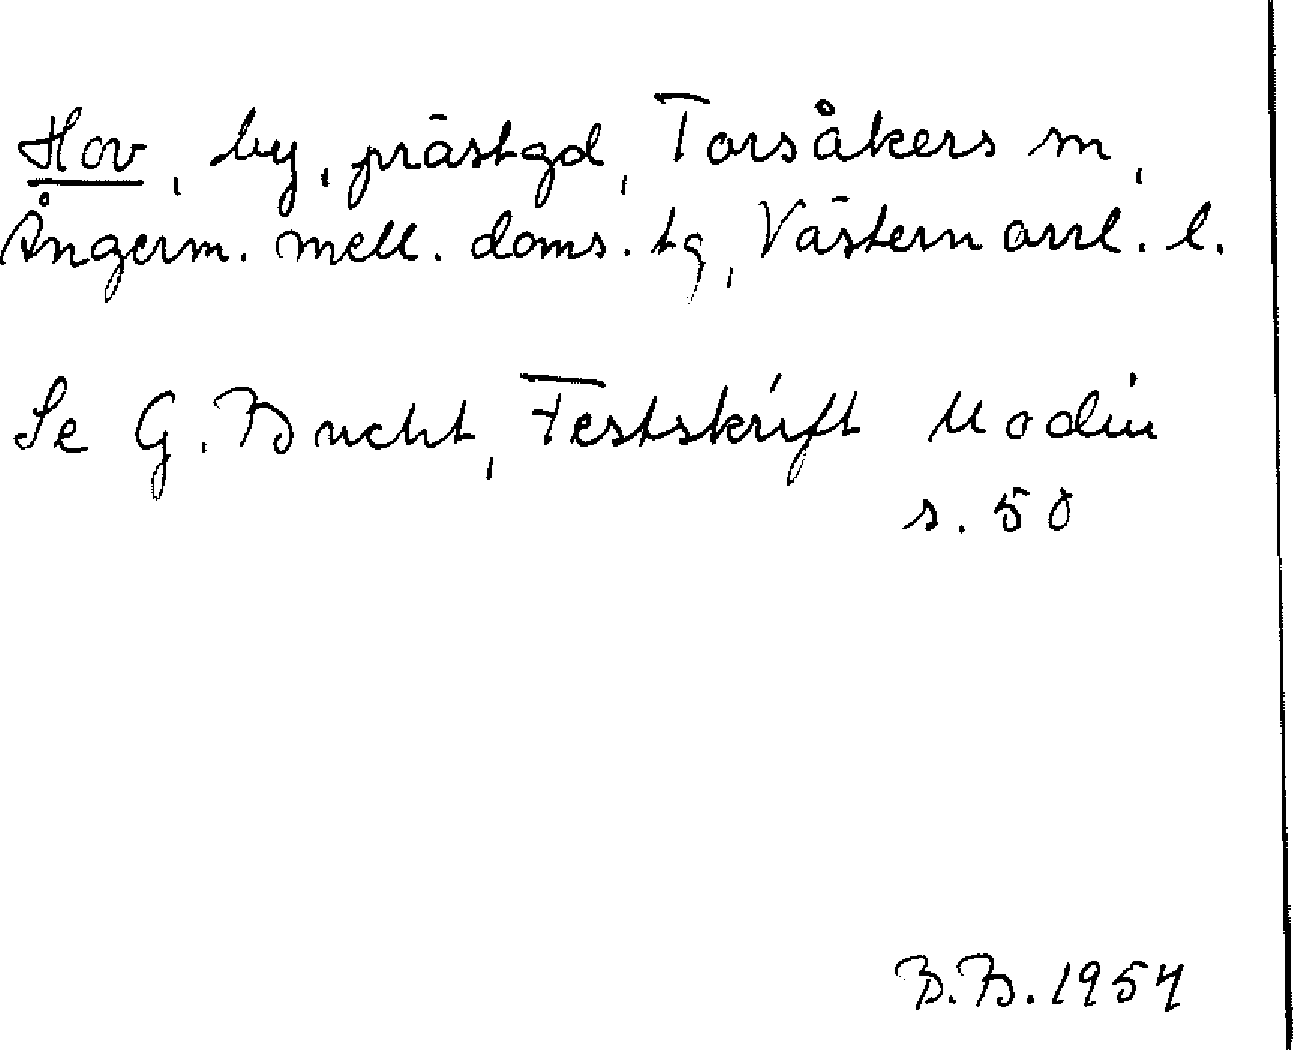 Hov, by, prästgd, Torsåkers sn,
Ångerm. mell. doms. tg, Västernorrl. l.
Se G. Bucht, Festskrift Modin
s. 50
B.B. 1954